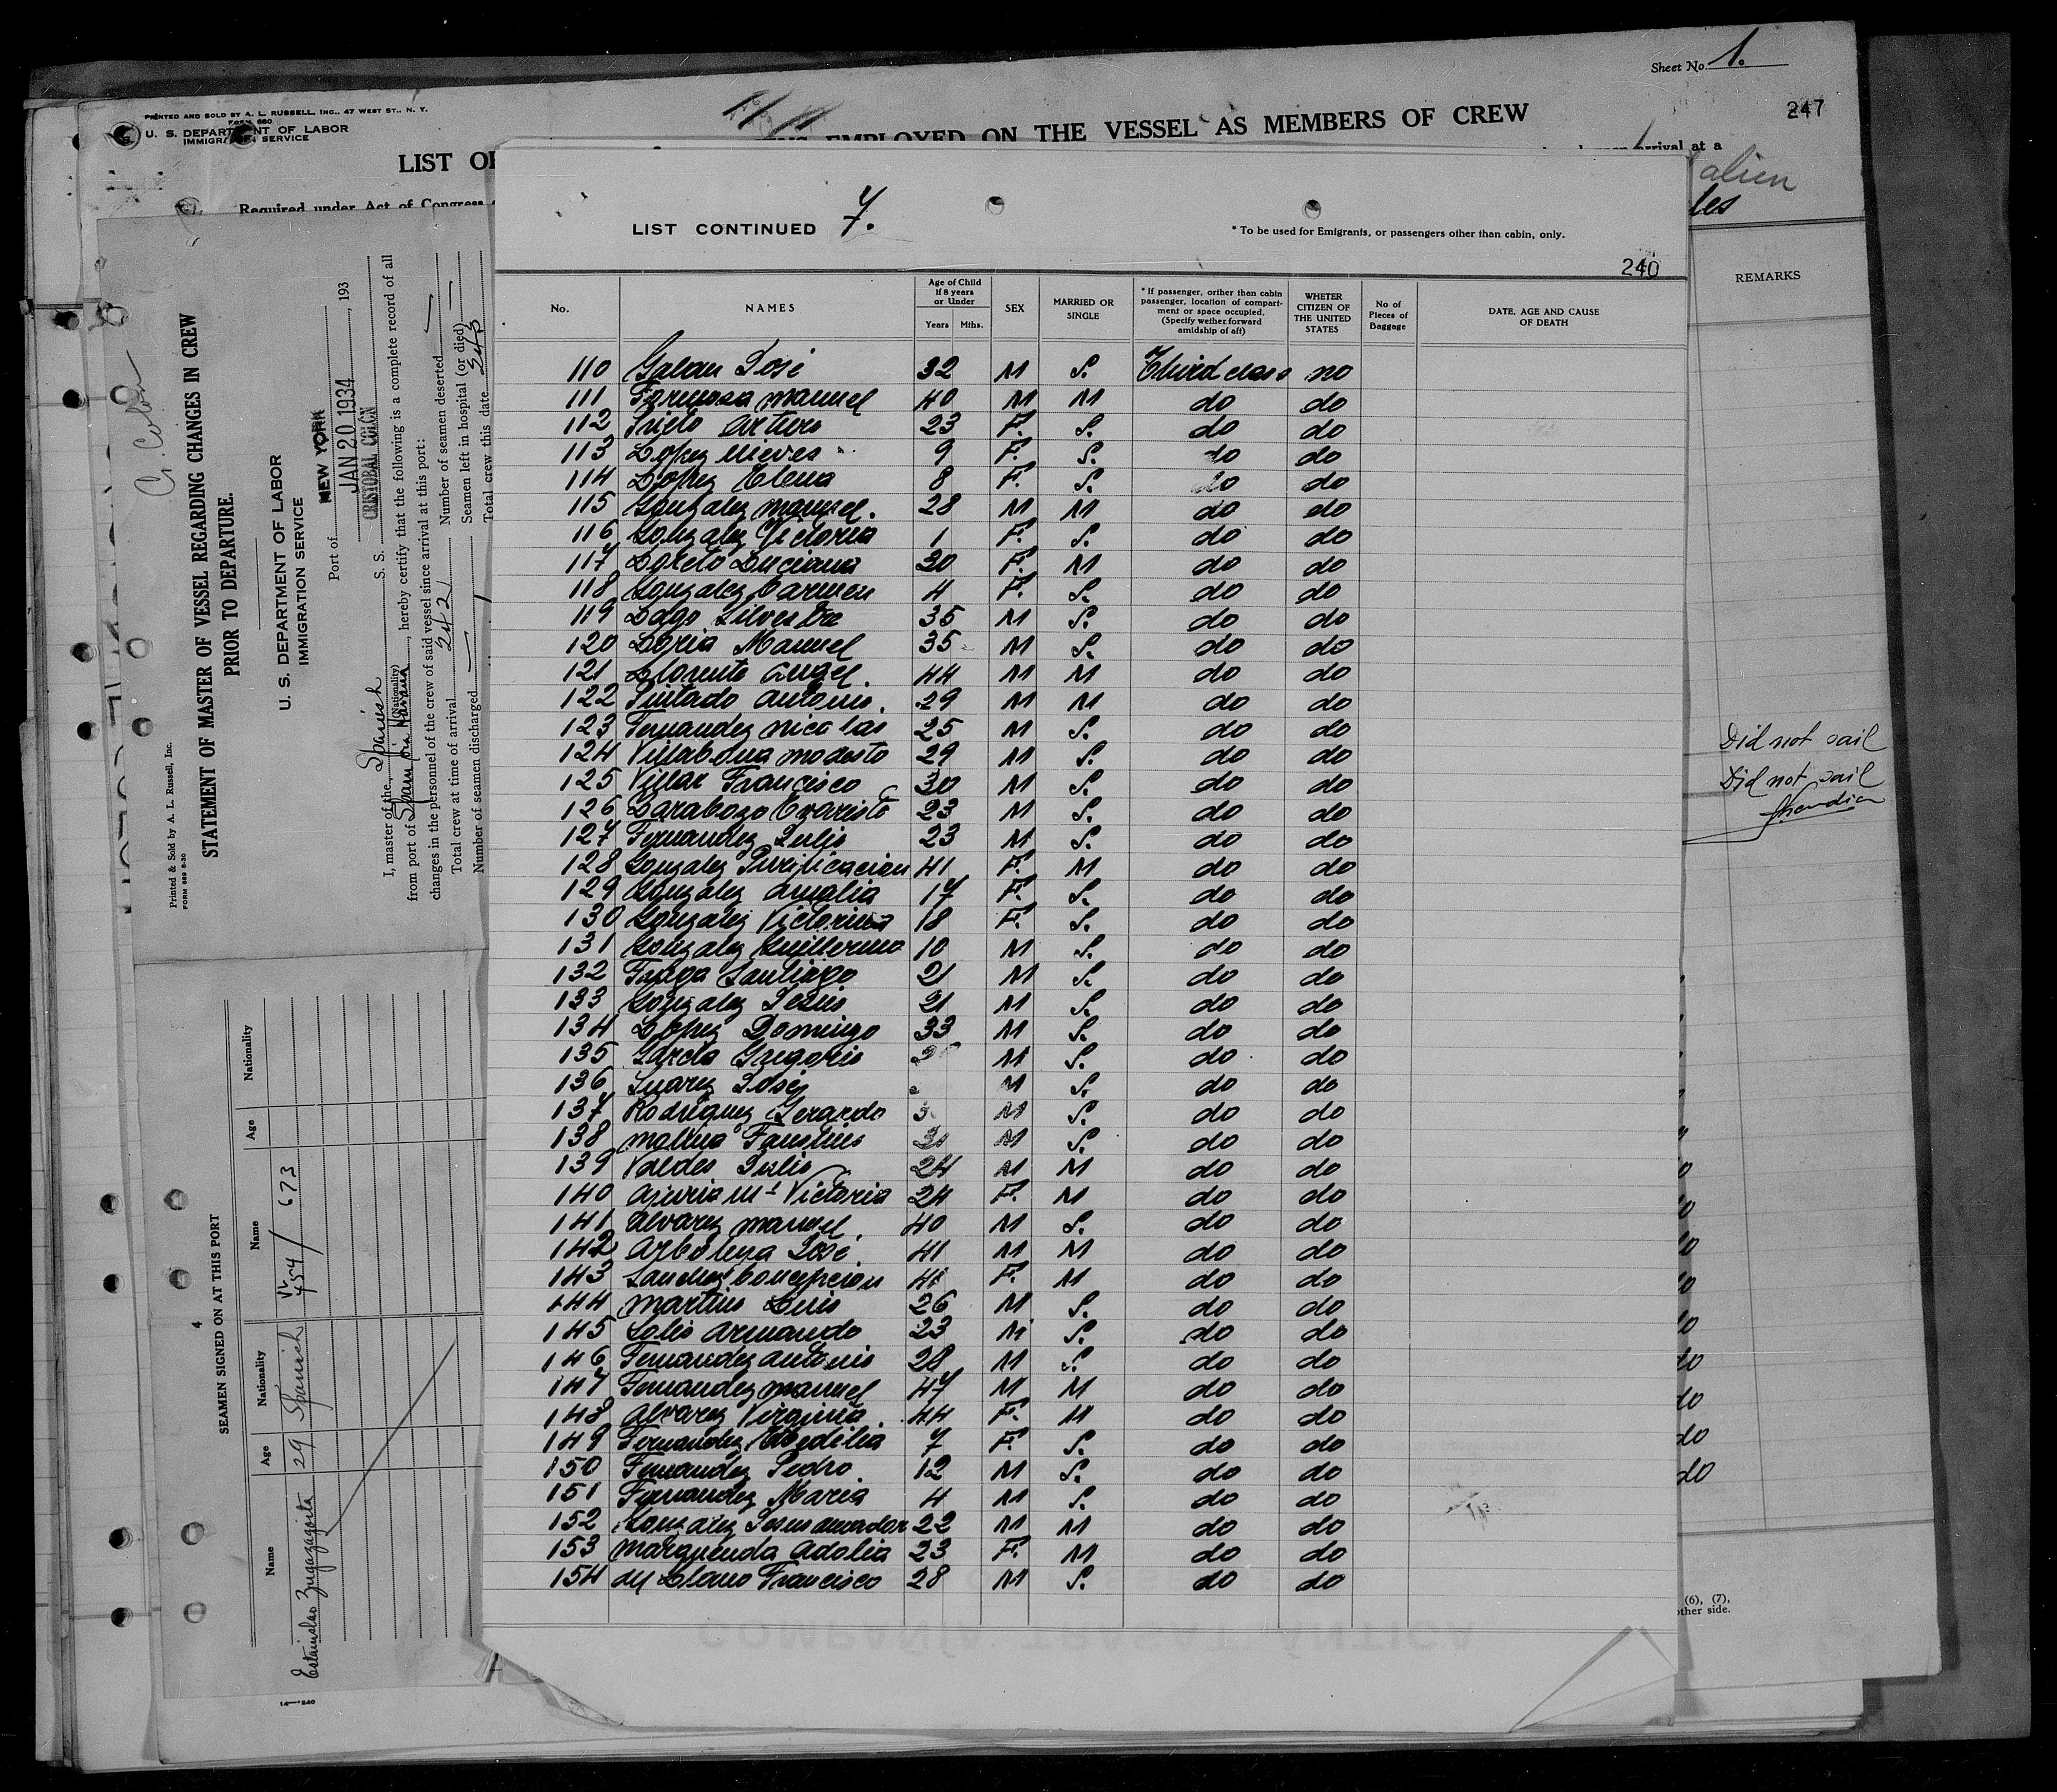 Sheet No. 1.
247
PRINTED AND SOLD BY A. L. RUSSELL, INC., 47 WEST ST., N. Y.
FORM 680
U. S. DEPARTMENT OF LABOR
IMMIGRATION SERVICE
LIST OF
EMPLOYED ON THE VESSEL AS MEMBERS OF CREW
Required under Act of Congress
arrival at a
alien
REMARKS
Did not sail
Did not sail
(6), (7),
other side.
LIST CONTINUED 7.
* To be used for Emigrants, or passengers other than cabin, only.
240
No. NAMES Age of Child if 8 years or Under Years Mths. SEX MARRIED OR SINGLE * If passenger, orither than cabin passenger, location of compartiment or space occupied. (Specify wether forward amidship of aft) WHETER CITIZEN OF THE UNITED STATES No of Pieces of Baggage DATE, AGE AND CAUSE OF DEATH
110 Galan José 32 M S. Third class no
111 Formosa manuel 40 M M do do
112 Prieto Arturo 23 F. S. do do
113 Lopez Nieves 9 F. S. do do
114 Lopez Elena 8 F. S. do do
115 Gonzalez manuel. 28 M M do do
116 Gonzalez Victoria 1 F. S. do do
117 Loreto Luciana 30 F. M do do
118 Gonzalez Carmen 4 F. S. do do
119 Lago Silvestre 35 M S. do do
120 Loria Manuel 35 M S. do do
121 Llorente angel. 44 M M do do
122 Pintado antonio. 29 M M do do
123 Fernandez nicolas 25 M S. do do
124 Villabona modesto 29 M S. do do
125 Villar Francisco 30 M S. do do
126 Carabozo Evaristo 23 M S. do do
127 Fernandez Julio 23 M S. do do
128 Gonzalez Purificacion 41 F. M do do
129 Gonzalez amalia 17 F. S. do do
130 Gonzalez Victorina 18 F. S. do do
131 Gonzalez Guillermo 10 M S. do do
132 Fuega Santiago 21 M S. do do
133 Gonzalez Jesus 21 M S. do do
134 Lopez Domingo 33 M S. do do
135 Garcia Gregorio M S. do do
136 Suarez José M S. do do
137 Rodriguez Gerardo M S. do do
138 molina Faustino M S. do do
139 Valdes Julio 24 M M do do
140 Ajuria Mª Victoria 24 F. M do do
141 alvarez manuel. 40 M S. do do
142 Arboleya José 41 M M do do
143 Sanchez Concepcion F. M do do
144 martino Luis 26 M S. do do
145 Solis armando 23 M S. do do
146 Fernandez antonio 28 M S. do do
147 Fernandez manuel 47 M M do do
148 alvarez Virginia. 44 F. M do do
149 Fernandez 7 F. S. do do
150 Fernandez Pedro. 12 M S. do do
151 Fernandez Maria 4 M S. do do
152 Gonzalez Jesus amador 22 M M do do
153 maranenda adolia 23 F. M do do
154 del Llano Francisco 28 M S. do do
C. Colon
Printed & Sold by A. L. Russell, Inc.
FORM 689 8-30
STATEMENT OF MASTER OF VESSEL REGARDING CHANGES IN CREW
PRIOR TO DEPARTURE.
U. S. DEPARTMENT OF LABOR
IMMIGRATION SERVICE
Port of NEW YORK
JAN 20 1934, 193
CRISTOBAL COLON
I, master of the Spanish S. S.
(Nationality)
from port of Spain via Havana, hereby certify that the following is a complete record of all
changes in the personnel of the crew of said vessel since arrival at this port:
Total crew at time of arrival 242 Number of seamen deserted —
Number of seamen discharged — Seamen left in hospital (or died) —
Total crew this date 243
4
SEAMEN SIGNED ON AT THIS PORT
Name Age Nationality Name Age Nationality
Estanislao Zugazagoita 29 Spanish 454/673
14—1240